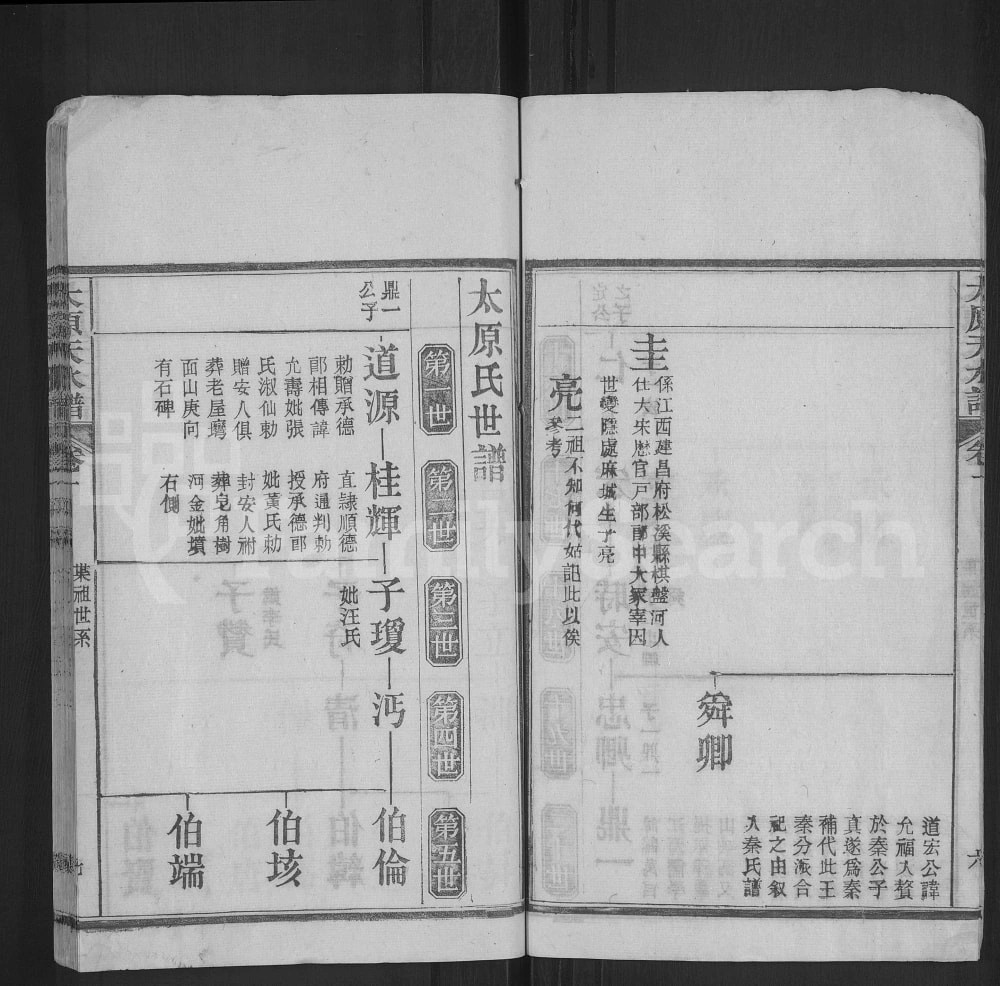 太原天水譜
卷一
六
圭
係江西建昌府松溪縣棋盤河人
仕大宋歷官戶部郎中大冢宰因
世變隱處麻城生子亮
亮
二祖不知何代姑記此以俟
參考
舜卿
道宏公諱
允福入贅
於秦公子
真遂為秦
補代此王
秦分派合
祀之由叙
入秦氏譜
太原氏世譜
第一世
第二世
第三世
第四世
第五世
鼎一
公子
道源
勅贈承德
郎相傳諱
允壽妣張
氏淑仙勅
贈安人俱
葬老屋塆
面山庚向
有石碑
桂輝
直隸順德
府通判勅
授承德郎
妣黃氏勅
封安人祔
葬皂角樹
河金妣墳
右側
子瓊
妣汪氏
沔
伯倫
伯垓
伯端
太原天水譜
卷一
葉祖世系
七
FamilySearch